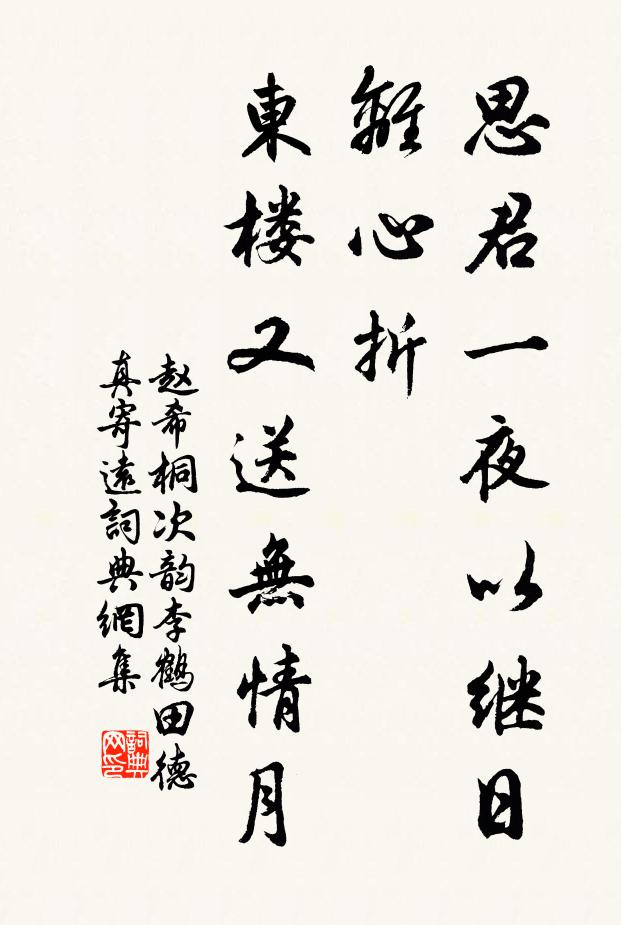 思君一夜以继日
離心折
東楼又送無情月
赵希桐次韵李鹤田德
真寄遠詞典網集
詞典网印